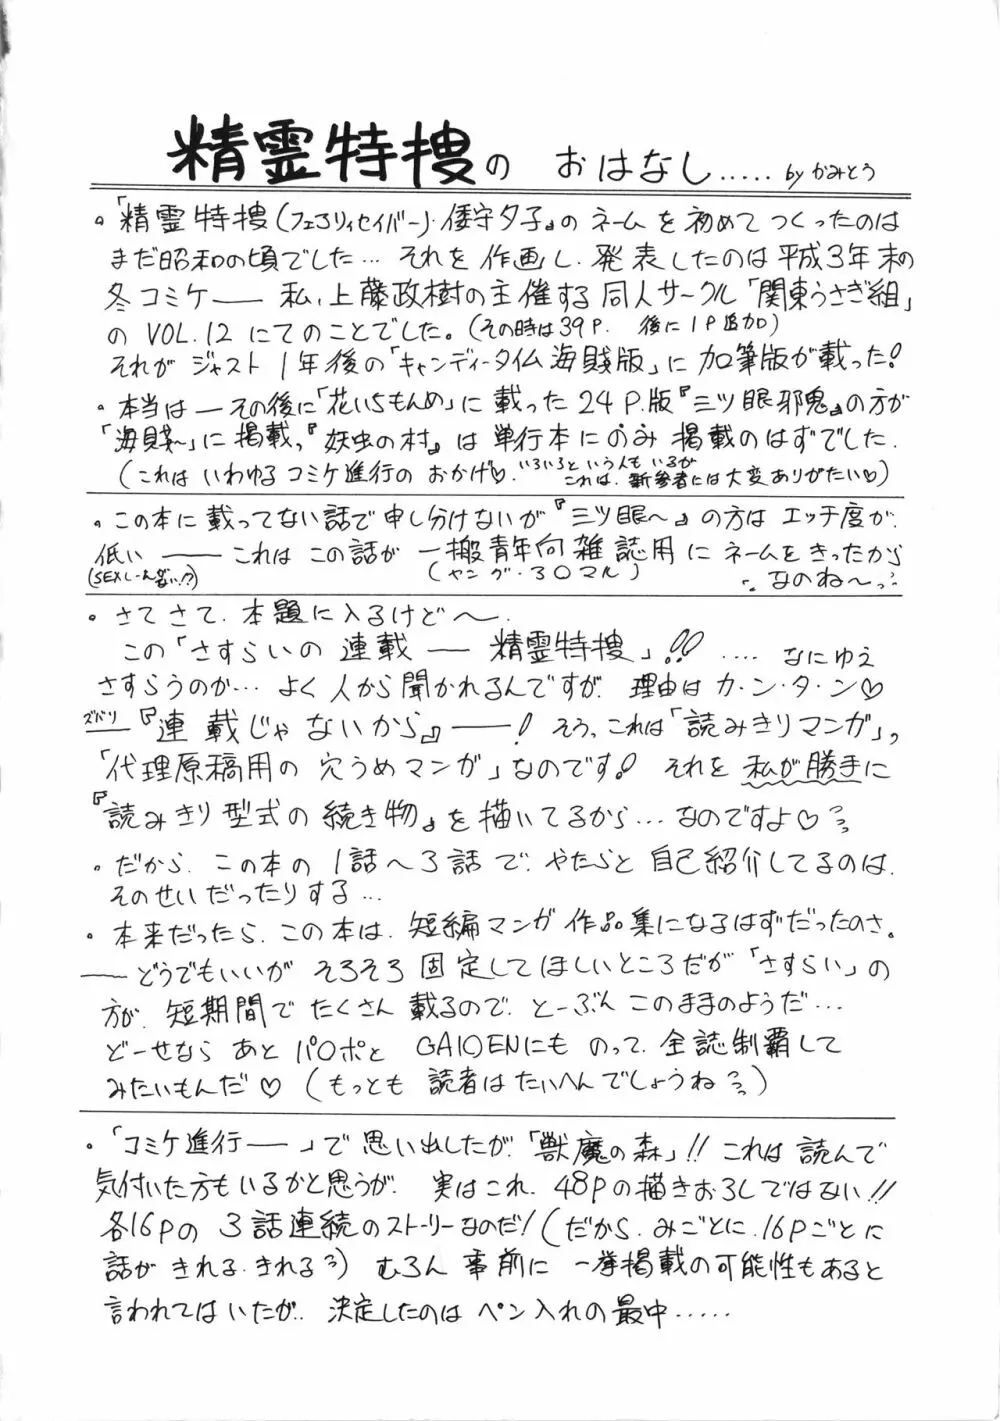 精霊特捜の おはなし..... by かみとう
。「精霊特捜(フェアリィセイバー)・倭守夕子』の ネーム を 初めて つくったのは
まだ昭和の頃でした… それを 作画し、発表したのは平成3年末の
冬コミケ―― 私、上藤政樹の主催する 同人サークル「関東うさぎ組」
の VOL.12 にてのことでした。(その時は39P. 後に1P追加)
それが ジャスト 1年後の「キャンディータイム 海賊版」に 加筆版が載った!
。本当は ―その後に「花いちもんめ」に 載った 24P.版『三ツ眼邪鬼』の方が
「海賊〜」に 掲載、『妖虫の村』は 単行本にのみ 掲載のはずでした.
(これは いわゆる コミケ進行の おかげ♡. いろいろと いう人も いるが これは、新参者には大変ありがたい♡)
。この本に 載ってない話で 申し分けないが『三ツ眼〜』の方は エッチ度が.
低い ―― これは この話が 一搬青年向雑誌用に ネームをきったから
(SEXしーん無い!?) (ヤング・30マル) なのね〜っ
。さて さて、本題に入るけど〜.
この「さすらいの 連載 ―― 精霊特捜」!! .... なにゆえ
さすらうのか… よく 人から聞かれるんですが. 理由は カ・ン・タ・ン♡
ズバリ『連載じゃないから』――! そう、これは「読みきりマンガ」、
「代理原稿用の 穴うめマンガ」なのです! それを 私が勝手に
『読みきり型式の 続き物』を 描いてるから… なのですよ♡
。だから、この本の 1話〜3話 で、やたらと 自己紹介してるのは.
そのせいだったりする…
。本来だったら、この本は、短編マンガ作品集になるはずだったのさ.
――どうでもいいが そろそろ 固定して ほしいところだが「さすらい」の
方が、短期間で たくさん 載るので、とーぶん このままのようだ…
どーせなら あと パロポと GAIDENにも のって、全誌制覇して
みたいもんだ♡ (もっとも 読者は たいへんでしょうね)
。「コミケ進行――」で 思い出したが、「獣魔の森」!! これは 読んで
気付いた方もいるかと思うが、実はこれ、48Pの描きおろしではない!!
各16Pの 3話連続のストーリーなのだ!(だから、みごとに、16Pごとに
話が きれる、きれる) むろん 事前に 一挙掲載の可能性もあると
言われてはいたが.. 決定したのは ペン入れの 最中.....